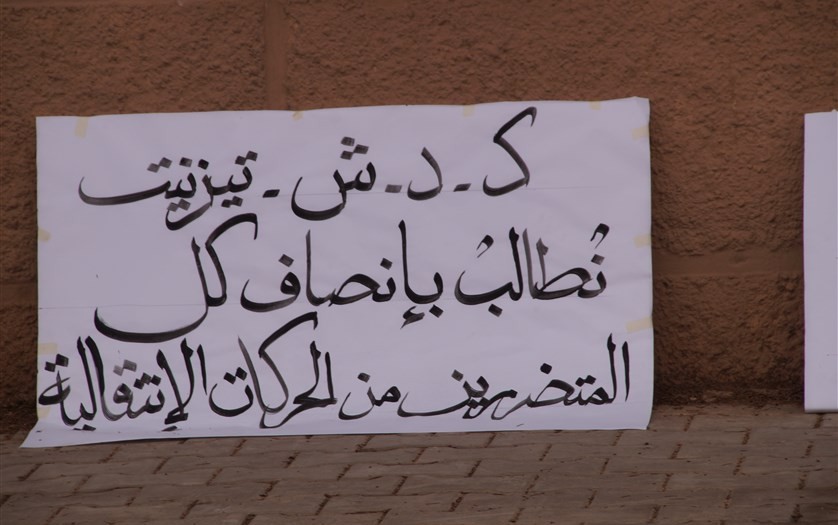 ك - د - ش - تيزنيت
نُطالبُ بإنصاف كل
المتضررين من الحركات الإنتقالية